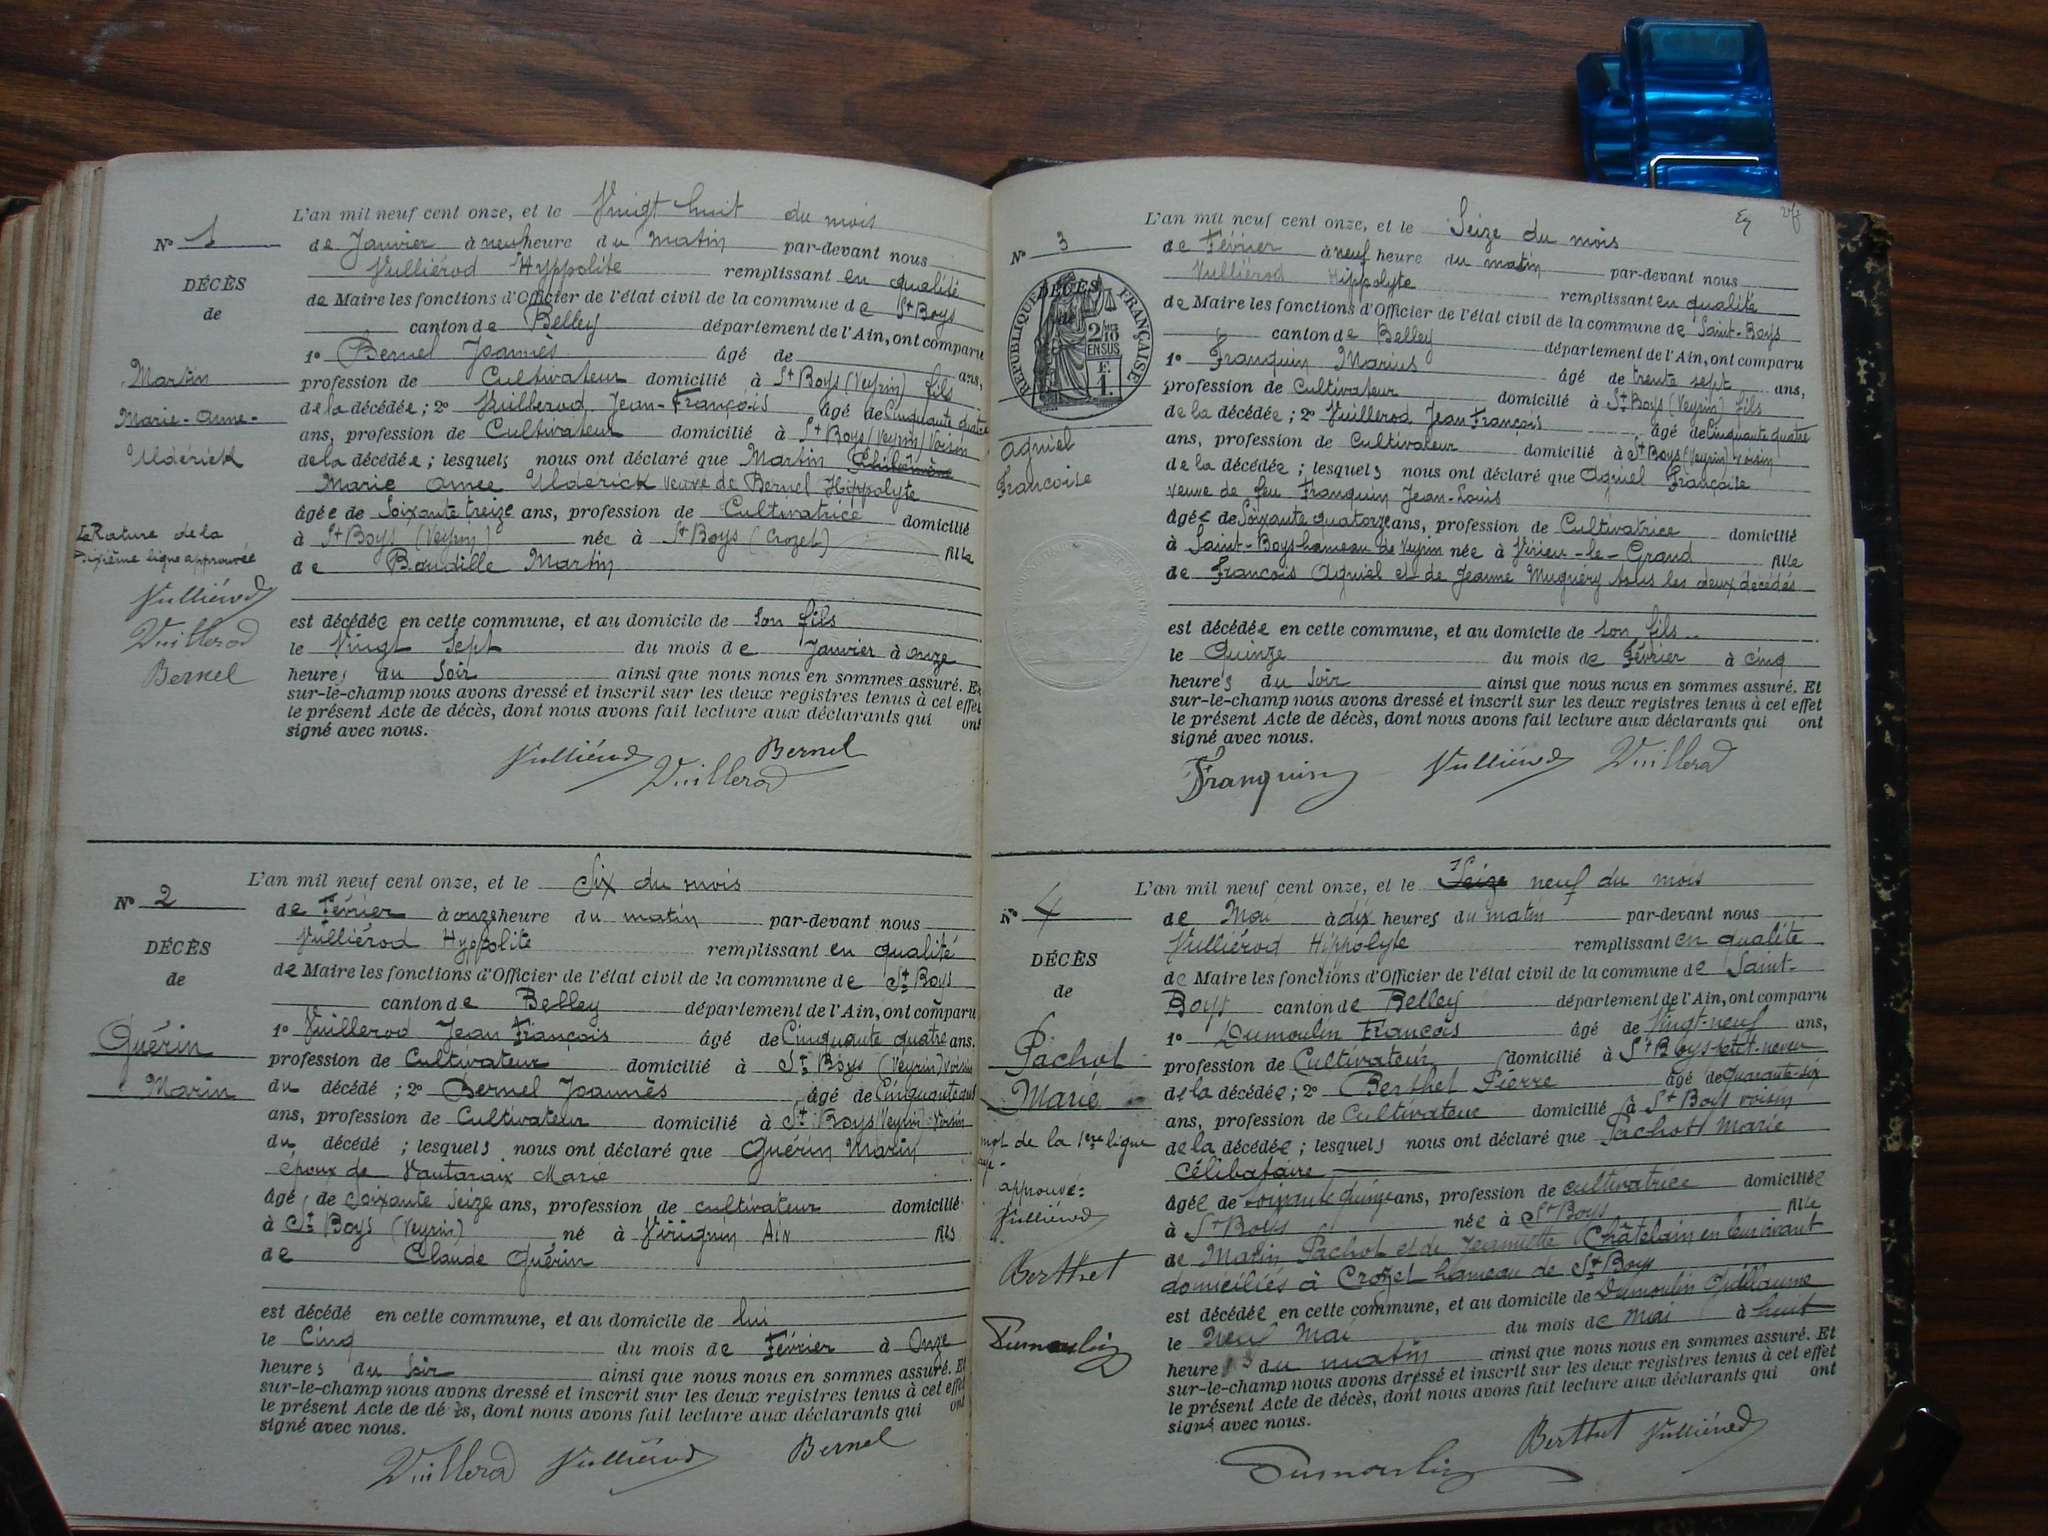 L'an mil neuf cent onze, et le Vingt huit du mois
N° 1
de Janvier à neuf heure du matin par-devant nous
Vulliérod Hyppolite remplissant en qualité
DÉCÈS
de Maire les fonctions d'Officier de l'état civil de la commune de St Boys
de
canton de Belley département de l'Ain, ont comparu
1° Bernel Joannès âgé de ans,
Martin
profession de Cultivateur domicilié à St Boys (Veyrin) fils
Marie-Anne-
de la décédée ; 2° Vuillerod Jean-François âgé de Cinquante quatre
ans, profession de Cultivateur domicilié à St Boys (Veyrin) Voisin
Ulderick
de la décédée ; lesquels nous ont déclaré que Martin Philomène
Marie Anne Ulderick veuve de Bernel Hippolyte
âgée de Soixante treize ans, profession de Cultivatrice domicilié
La Rature de la
à St Boys (Veyrin) née à St Boys (Crozet) fille
Dixième ligne approuvée
de Baudille Martin
Vulliérod
Vuillerod
Bernel
est décédée en cette commune, et au domicile de son fils
le Vingt Sept du mois de Janvier à onze
heures du Soir ainsi que nous nous en sommes assuré. Et
sur-le-champ nous avons dressé et inscrit sur les deux registres tenus à cet effet
le présent Acte de décès, dont nous avons fait lecture aux déclarants qui ont
signé avec nous.
Vulliérod Vuillerod Bernel
L'an mil neuf cent onze, et le Six du mois
N° 2
de Février à onze heure du matin par-devant nous
Vulliérod Hyppolite remplissant en qualité
DÉCÈS
de Maire les fonctions d'Officier de l'état civil de la commune de St Boys
de
canton de Belley département de l'Ain, ont comparu
1° Vuillerod Jean François âgé de Cinquante quatre ans.
Guérin
profession de Cultivateur domicilié à St Boys (Veyrin) voisin
Marin
du décédé ; 2° Bernel Joannès âgé de Cinquante ans
ans, profession de Cultivateur domicilié à St Boys (Veyrin) Voisin
du décédé ; lesquels nous ont déclaré que Guérin Marin
époux de Vautaraix Marie
âgé de Soixante Seize ans, profession de cultivateur domicilié
à St Boys (Veyrin) né à Virignin Ain fils
de Claude Guérin
est décédé en cette commune, et au domicile de lui
le Cinq du mois de Février à Onze
heures du Soir ainsi que nous nous en sommes assuré. Et
sur-le-champ nous avons dressé et inscrit sur les deux registres tenus à cet effet
le présent Acte de décès, dont nous avons fait lecture aux déclarants qui ont
signé avec nous.
Vuillerod Vulliérod Bernel
L'an mil neuf cent onze, et le Seize du mois
N° 3
de Février à neuf heure du matin par-devant nous
Vulliérod Hippolyte remplissant en qualité
DÉCÈS
de
RÉPUBLIQUE FRANÇAISE
2/10 EN SUS
F. 1.
de Maire les fonctions d'Officier de l'état civil de la commune de Saint-Boys
canton de Belley département de l'Ain, ont comparu
1° Franquin Marius âgé de trente sept ans,
profession de Cultivateur domicilié à St Boys (Veyrin) fils
de la décédée ; 2° Vuillerod Jean François âgé de Cinquante quatre
Agniel
ans, profession de Cultivateur domicilié à St Boys (Veyrin) voisin
Francoise
de la décédée ; lesquels nous ont déclaré que Agniel Françoise
veuve de feu Franquin Jean-Louis
âgée de Soixante quatorze ans, profession de Cultivatrice domicilié
à Saint-Boys hameau de Veyrin née à Virieu-le-Grand fille
de François Agniel et de Jeanne Muguéry tous les deux décédés
est décédée en cette commune, et au domicile de son fils
le Quinze du mois de Février à cinq
heures du Soir ainsi que nous nous en sommes assuré. Et
sur-le-champ nous avons dressé et inscrit sur les deux registres tenus à cet effet
le présent Acte de décès, dont nous avons fait lecture aux déclarants qui ont
signé avec nous.
Franquin Vulliérod Vuillerod
L'an mil neuf cent onze, et le Seize neuf du mois
N° 4
de Mai à dix heures du matin par-devant nous
Vulliérod Hippolyte remplissant en qualité
DÉCÈS
de Maire les fonctions d'Officier de l'état civil de la commune de Saint-
de
Boys canton de Belley département de l'Ain, ont comparu
1° Dumoulin François âgé de Vingt-neuf ans,
Pachot
profession de Cultivateur domicilié à St Boys petit-neveu
Marie
de la décédée ; 2° Berthet Pierre âgé de quarante-six
ans, profession de Cultivateur domicilié à St Boys voisin
mot de la 1ère ligne
de la décédée ; lesquels nous ont déclaré que Pachot Marie
Célibataire
approuvé :
âgée de soixante quinze ans, profession de cultivatrice domiciliée
Vulliérod
à St Boys née à St Boys fille
de Marin Pachot et de Jeannette Châtelain en leur vivant
Berthet
domiciliés à Crozet hameau de St Boys
est décédée en cette commune, et au domicile de Dumoulin Guillaume
Dumoulin
le Neuf Mai du mois de Mai à huit
heures du matin ainsi que nous nous en sommes assuré. Et
sur-le-champ nous avons dressé et inscrit sur les deux registres tenus à cet effet
le présent Acte de décès, dont nous avons fait lecture aux déclarants qui ont
signé avec nous.
Dumoulin Berthet Vulliérod